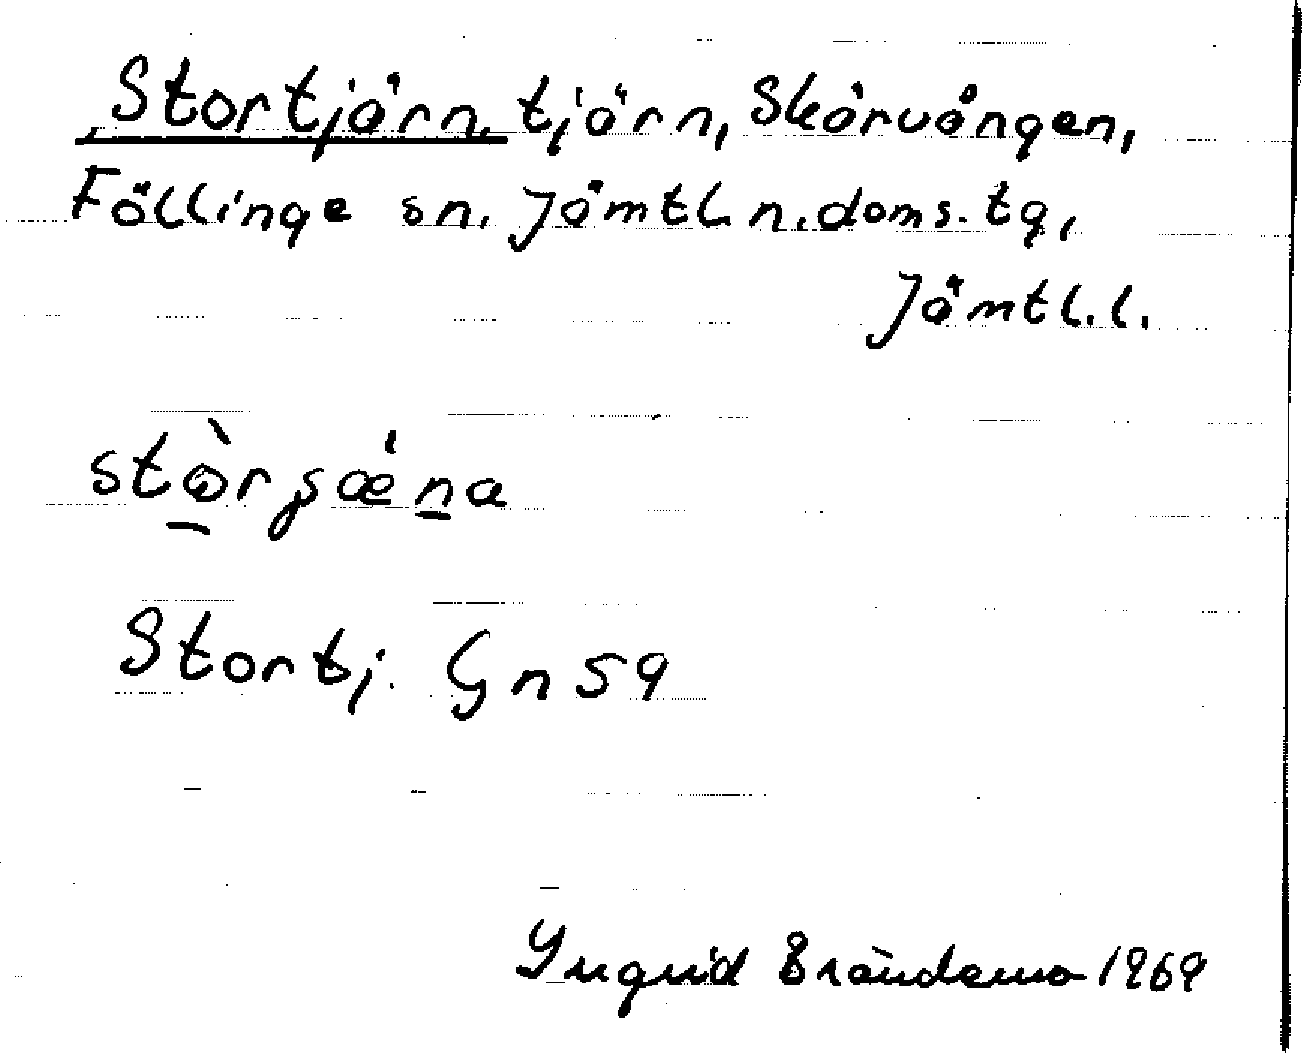 Stortjärn, tjärn, Skärvången,
Föllinge sn. Jämtl. n. doms. tg,
Jämtl. l.
Stortj. Gn 59
Ingrid 1969